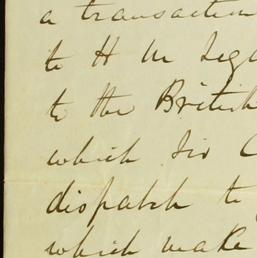 a transaction
to H M Lega
to the British
which Sir C
dispatch to
which make